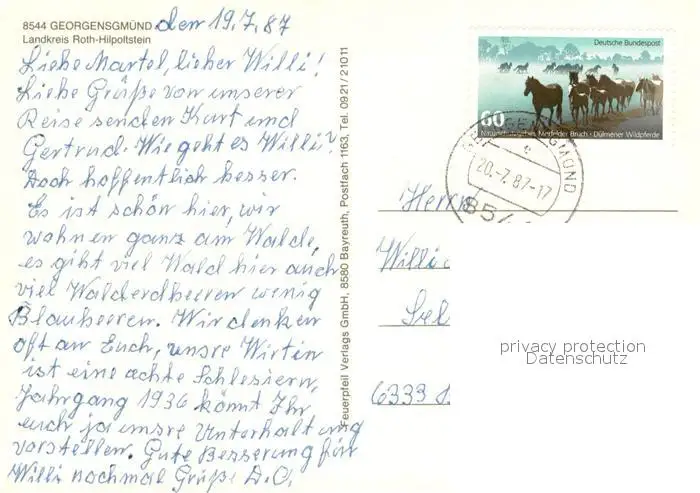 8544 GEORGENSGMÜND den 19.7.87
Landkreis Roth-Hilpoltstein
Liebe Martel, lieber Willi!
Liebe Grüße von unserer
Reise senden Kurt und
Gertrud. Wie geht es Willi?
Doch hoffentlich besser.
Es ist schön hier, wir
wohnen ganz am Walde,
es gibt viel Wald hier auch
viel Walderdbeeren wenig
Blaubeeren. Wir denken
oft an Euch, unsre Wirtin
ist eine echte Schlesiern,
Jahrgang 1936 könnt Ihr
euch ja unsre Unterhaltung
vorstellen. Gute Besserung für
Willi nochmal Grüße D.O.
Feuerpfeil Verlags GmbH, 8580 Bayreuth, Postfach 1163, Tel. 0921 / 21011
Deutsche Bundespost
60
Naturschutzgebiet Merfelder Bruch · Dülmener Wildpferde
GEORGENSGMÜND
20.-7.87-17
854
Herrn
Willi
Sel
6333
privacy protection
Datenschutz